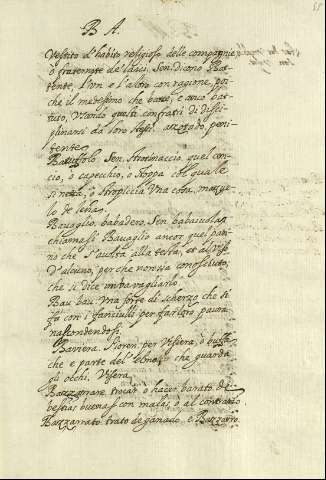 B A.
Vestito d'habito religioso delle compagnie,
o fraternite de laici. Sen. dicono Bat-
tente, l'vn e l'altro con ragione, poi
che il medesimo che batte, è anco bat-
tuto, Vsando questi confrati di disci-
plinarsi da loro stessi. açotado, peni-
tente.
Batuffolo. Sen. Strofinaccio, quel cen-
cio, o capecchio, o stoppa col quale
si netta, o stropiccia Vna cosa,
lo de
Bavaglio, babadero. Sen. babaiuola,
chiamasi Bavaglio ancor quel pan-
no che s'auolta alla testa, et al viso
d'alcuno, per che non sia conosciuto,
che si dice imbavagliarlo.
Bau bau. Vna sorte di scherzo che si
fa con i fanciulli per far loro paura
nascondendosi.
Baviera. Fioren. per Visiera, o buffa
che è parte del'elmo che guarda
gli occhi. Visera.
Bazzarrare. trocar, o hacer barato de
bestias buenas con malas, o al contrario
Bazzarrato. trato de ganado. e Bazzarro.